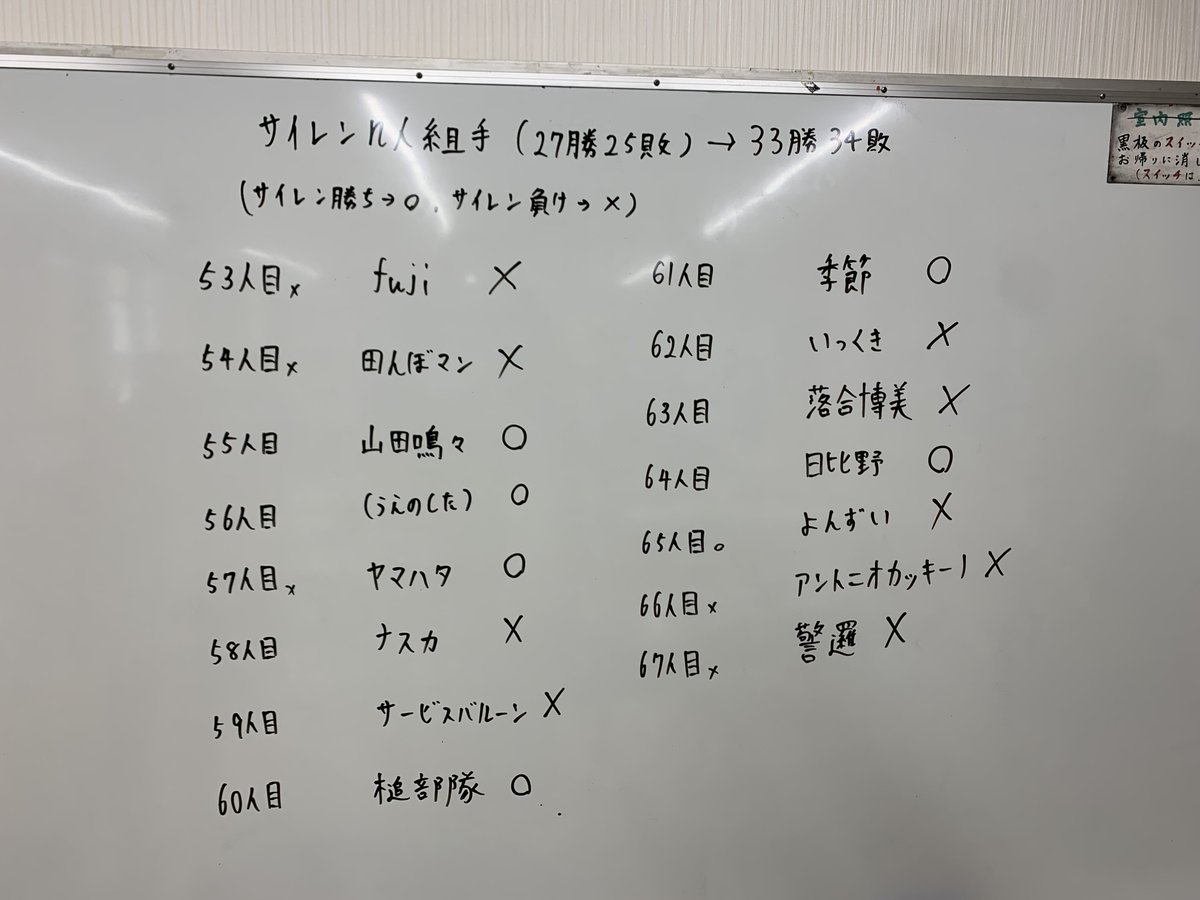 サイレンn人組手 (27勝25敗) → 33勝34敗
(サイレン勝ち→○、サイレン負け→×)
53人目× fuji ×
54人目× 田んぼマン ×
55人目 山田鳴々 ○
56人目 (うえのした) ○
57人目× ヤマハタ ○
58人目 ナスカ ×
59人目 サービスバルーン ×
60人目 槌部隊 ○
61人目 季節 ○
62人目 いっくき ×
63人目 落合博美 ×
64人目 日比野 ○
65人目○ よんずい ×
66人目× アントニオカッキーノ ×
67人目× 警邏 ×
室内照
黒板のスイッ
お帰りに消し
(スイッチは